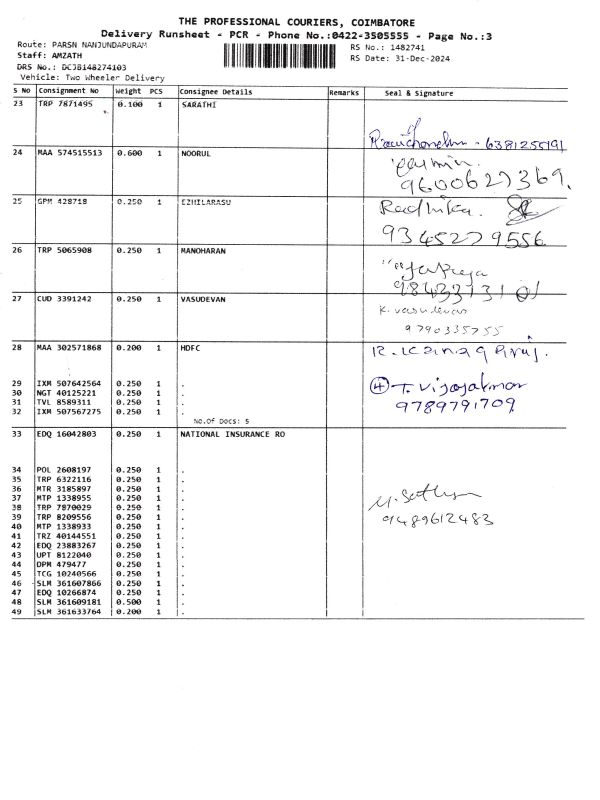 THE PROFESSIONAL COURIERS, COIMBATORE
Delivery Runsheet - PCR - Phone No.:0422-3505555 - Page No.:3
Route: PARSN NANJUNDAPURAM
RS No.: 1482741
Staff: AMZATH
RS Date: 31-Dec-2024
DRS No.: DCJB148274103
Vehicle: Two Wheeler Delivery
S No Consignment No Weight PCS Consignee Details Remarks Seal & Signature
23 TRP 7871495 0.100 1 SARATHI
Ramchandran - 6381255191
24 MAA 574515513 0.600 1 NOORUL
Yasmin.
9600627369.
25 GPM 428718 0.250 1 EZHILARASU Radhika.
9345279556
26 TRP 5065908 0.250 1 MANOHARAN
27 CUD 3391242 0.250 1 VASUDEVAN K. Vasudevan
9790335755
28 MAA 302571868 0.200 1 HDFC R. Kanagaraj.
29 IXM 507642564 0.250 1 .
30 NGT 40125221 0.250 1 . 4 T. Vijayakmar
31 TVL 8589311 0.250 1 .
32 IXM 507567275 0.250 1 . 9789791709
No.Of Docs: 5
33 EDQ 16042803 0.250 1 NATIONAL INSURANCE RO
34 POL 2608197 0.250 1 .
35 TRP 6322116 0.250 1 .
36 MTR 3185897 0.250 1 .
37 MTP 1338955 0.250 1 .
38 TRP 7870029 0.250 1 .
39 TRP 8209556 0.250 1 . 9489612483
40 MTP 1338933 0.250 1 .
41 TRZ 40144551 0.250 1 .
42 EDQ 23883267 0.250 1 .
43 UPT 8122040 0.250 1 .
44 DPM 479477 0.250 1 .
45 TCG 10240566 0.250 1 .
46 SLM 361607866 0.250 1 .
47 EDQ 10266874 0.250 1 .
48 SLM 361609181 0.500 1 .
49 SLM 361633764 0.200 1 .